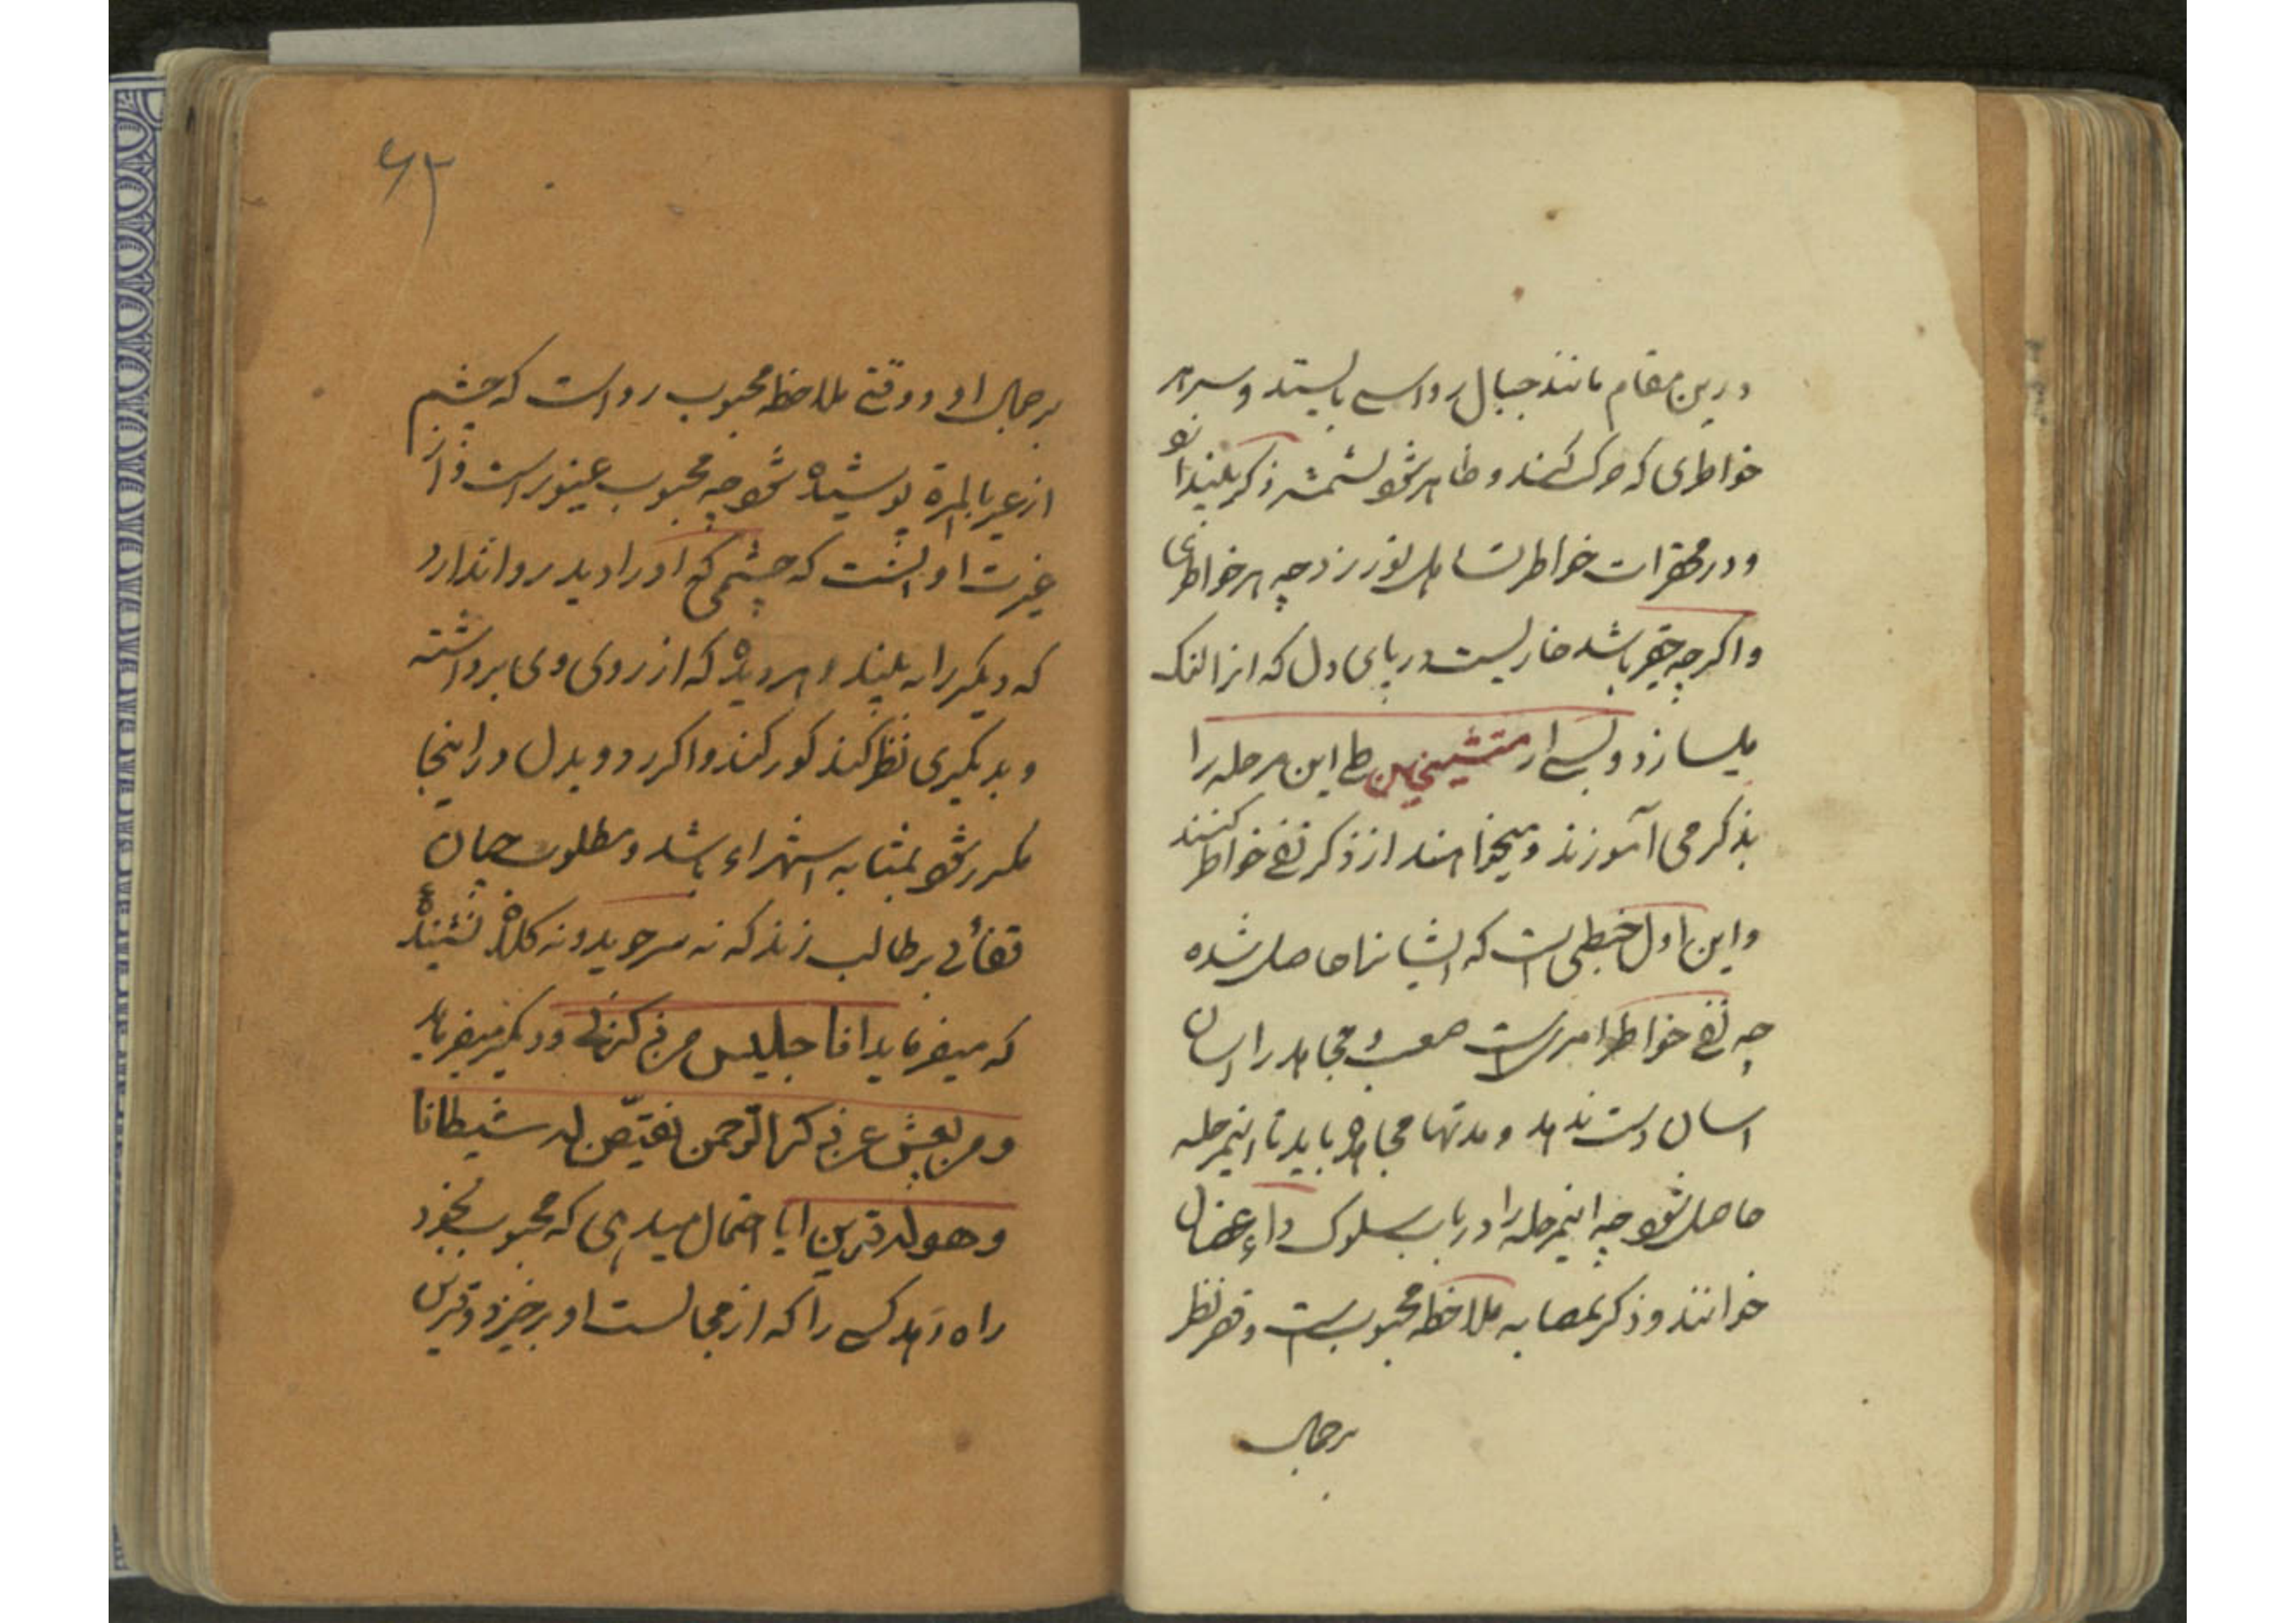 درین مقام مانند جبال رواسی بایستد و سر هر
خواطری که حرکت کند و ظاهر شود بشمشیر ذکر بیندازد
و در محقرات خواطر تساهل نورزد چه هر خواطری
و اگرچه حقیر باشد خاریست در پای دل که انرا لنک
میسازد و بسی از متشیخین طی این مرحله را
بذکر می آموزند و میخواهند از ذکر نفی خواطر کنند
و این اول خبطی است که ایشانرا حاصل شده
چه نفی خواطر امریست صعب و مجاهد را اسان
اسان دست ندهد و مدتها مجاهده باید تا اینمرحله
حاصل شود چه اینمرحله را ارباب سلوک داء عضال
خوانند و ذکر بمثابه ملاحظه محبوب است و قصر نظر
بر جمال
۶۲
بر جمال او و وقتی ملاحظه محبوب رواست که چشم
از غیر بالمرة پوشیده شود چه محبوب غیور است و از
غیرت او است که چشمی که او را دید روا ندارد
که دیگر را به بیند و هر دیده که از روی وی برداشته
و بدیکری نظر کند کور کند و اکر رد و بدل در اینجا
مکرر شود بمثابه استهزاء باشد و مطلوب چنان
قفائی بر طالب زند که نه سر جوید و نه کلاه نشنیدهٔ
که میفرماید انا جلیس من ذکرنی و دیکر میفرماید
و من یعش عن ذکر الرحمن نقیض له شیطانا
و هو له قرین ایا احتمال میدهی که محبوب بخود
راه دهد کسی را که از مجالست او برخیزد و قرین